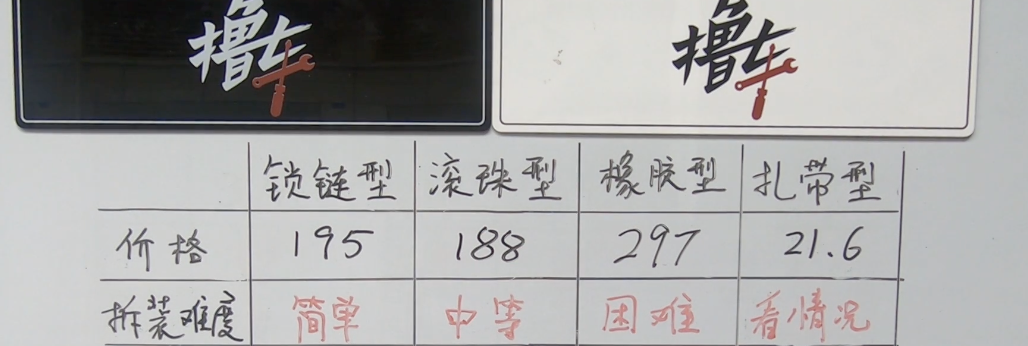 撸车 撸车
锁链型 滚珠型 橡胶型 扎带型
价格 195 188 297 21.6
拆装难度 简单 中等 困难 看情况